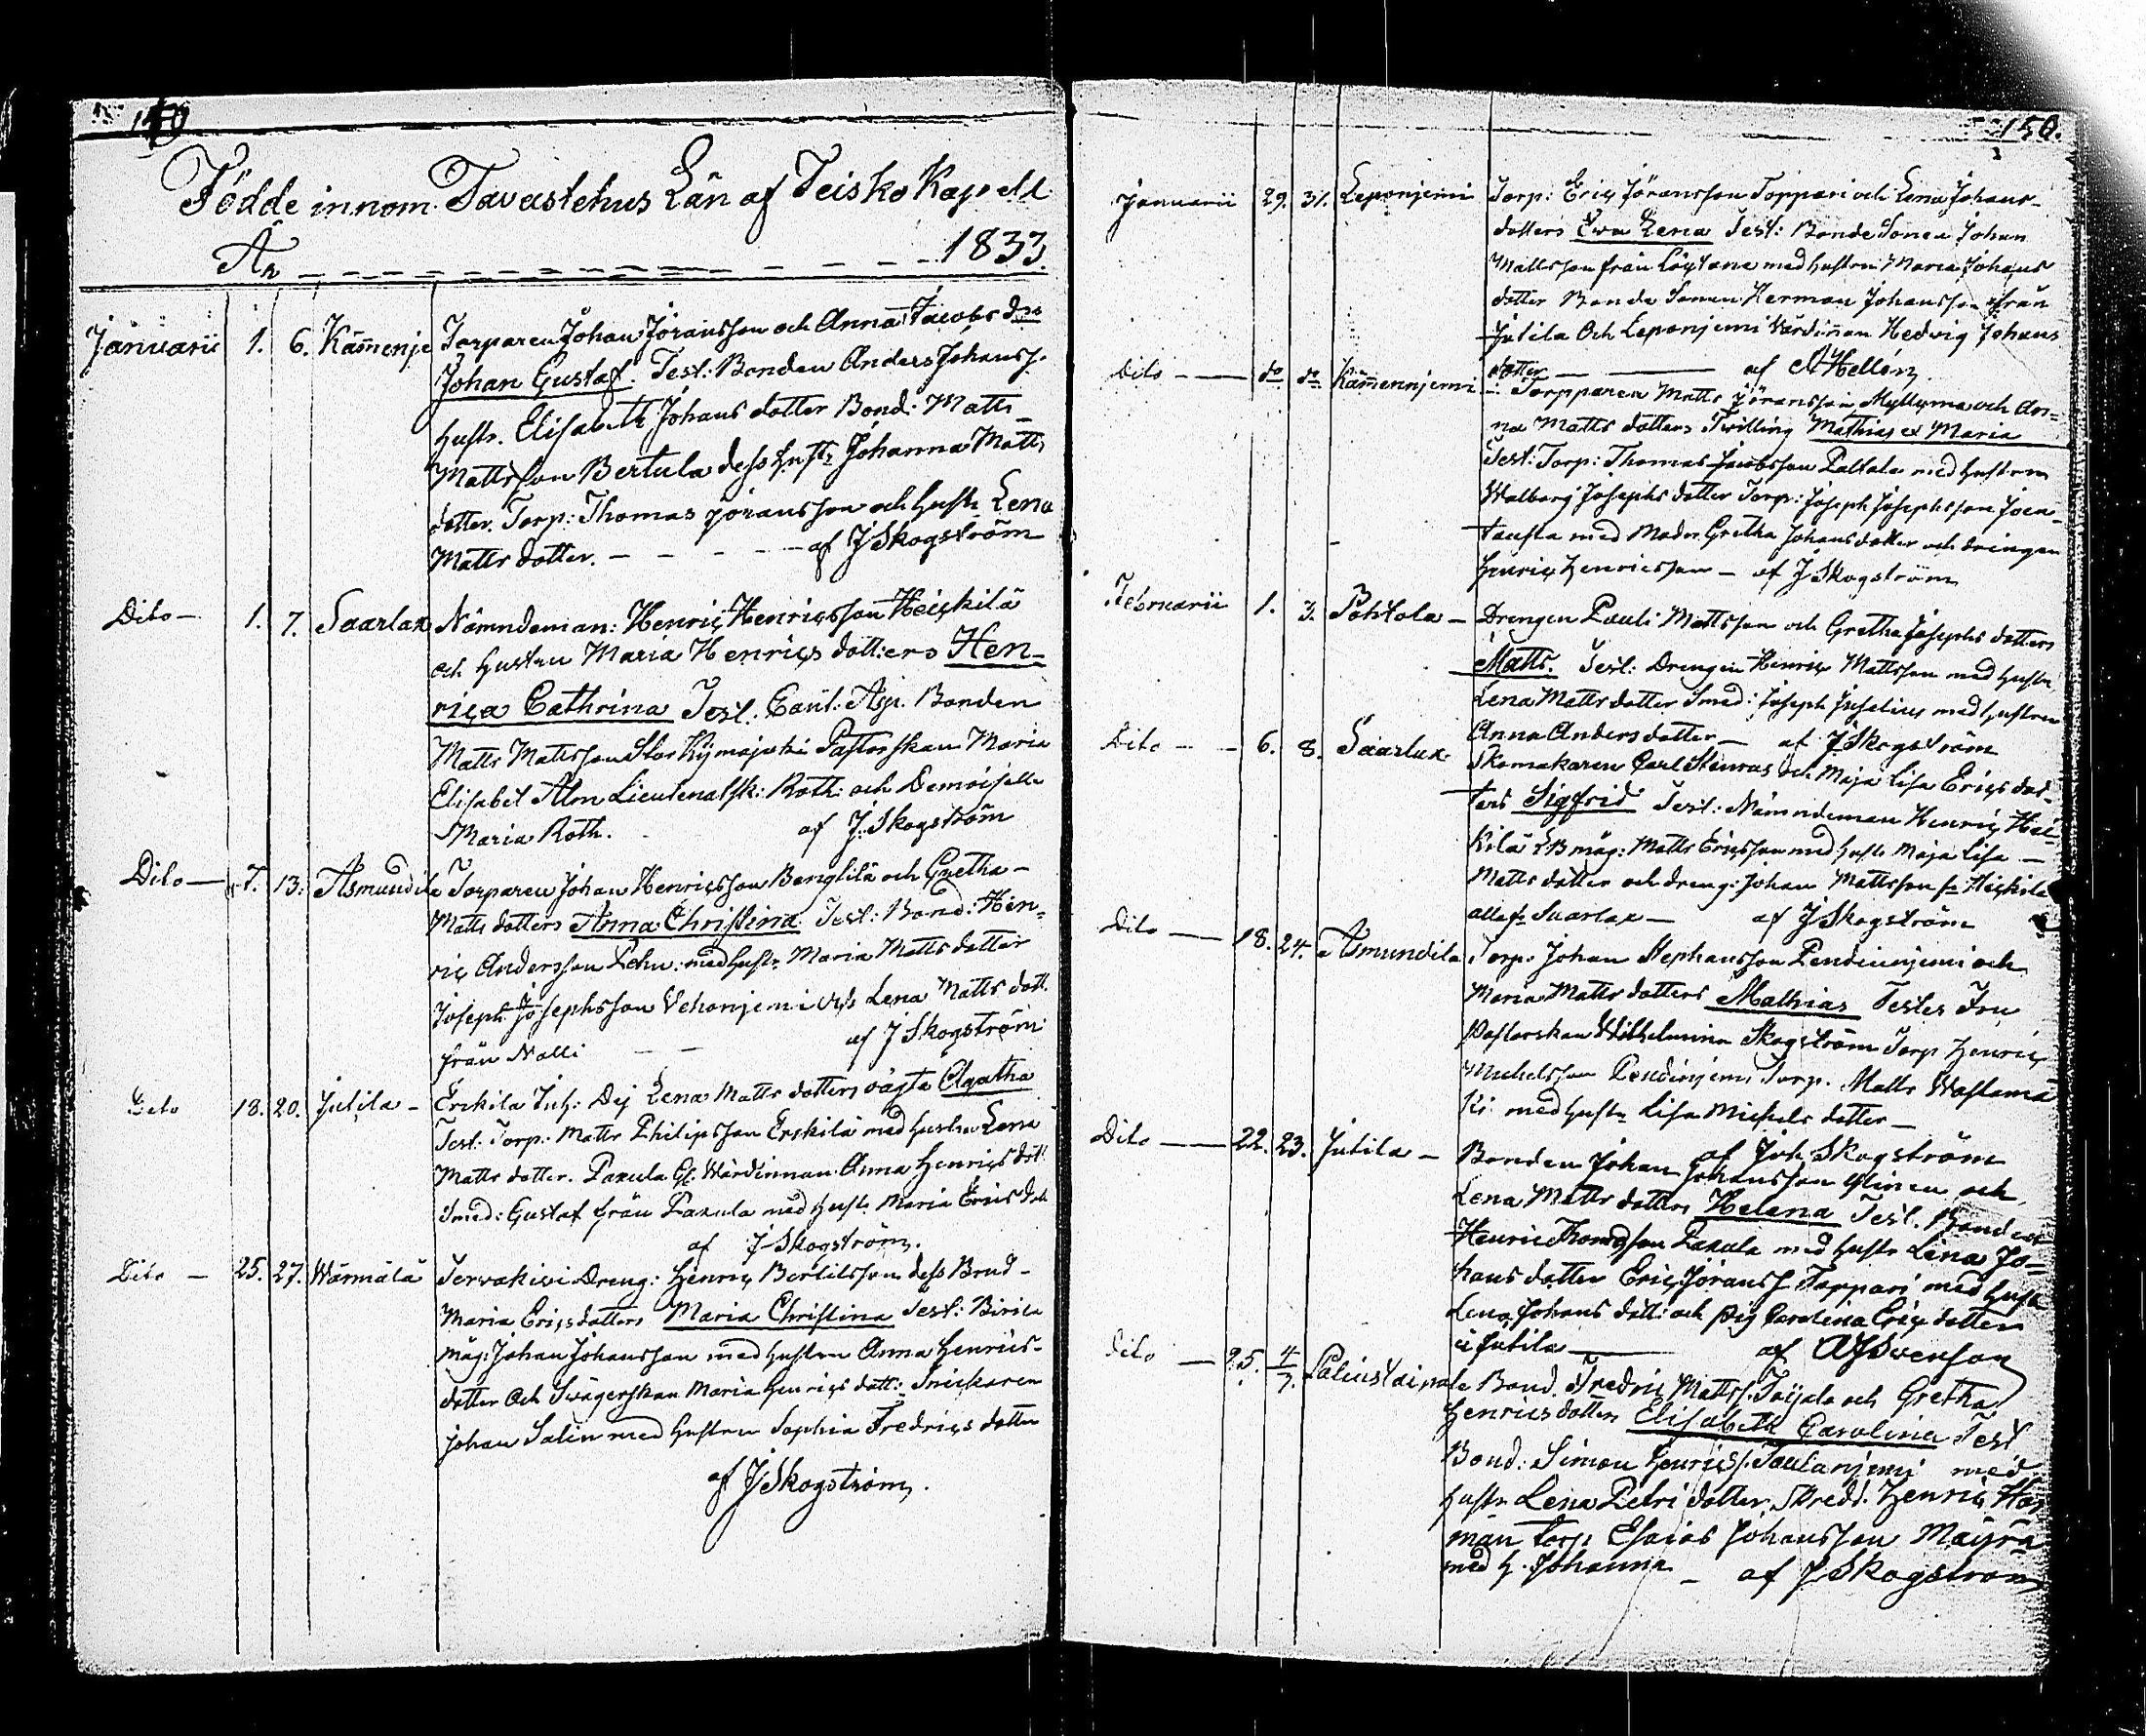 Födde innom Tavastehus Län af Teisko Kapell
År 1833.
Januarii 1. 6. Kämenje Torparen Johan Jöransson och Anna Jacobs dr
Johan Gustaf. Test: Bonden Anders Johanss.
hustr. Elisabeth Johans dotter Bond: Matts
Mattsson Bertula dess hustr Johanna Matts
dotter. Torp: Thomas Jöransson och hustr Lena
Matts dotter. af J Skogström
Dito 1. 7. Saarlax Nämndeman: Henric Henricsson Heickilä
och hustru Maria Henrics dott:ers Hen-
rica Cathrina Test: Bonden
Matts Mattsson Pastorskan Maria
Elisabet Alm Lieutenatsk: Roth: och Demoiselle
Maria Roth. af J. Skogström
Dito 7. 13. Asmundila Torparen Johan Henricsson och Gretha
Matts dotters Anna Christina Test: Bond: Hen-
ric Andersson med hustr Maria Matts dotter
Joseph Josephsson Vehonjemi Lena Matts dott.
från Nalli af J Skogström
Dito 18. 20. Jutila Erckila Inh: Lena Matts dotters oägta Agatha
Test: Torp: Matts Philipsson Erskila med hustru Lena
Matts dotter. Paxula Wärdinnan Anna Henrics dott
Smed: Gustaf från Paxula med hustr Maria Erics dott
af J Skogström.
Dito 25. 27. Wärmälä Terwakivi Dreng: Henric Bertilsson dess Brud
Maria Erics dotters Maria Christina Test: Birila
måg: Johan Johansson med hustru Anna Henrics
dotter Och Swägerskan Maria Henrics dott: Snickaren
Johan Salin med hustru Sophia Fredrics dotter
af J Skogström.
150.
Januarii 29. 31. Leponjemi Torp: Eric Jöransson Toppari och Lena Johans
dotters Ewa Lena Test: Bonde Sonen Johan
Mattsson från med hustru Maria Johans
dotter Bonde Sonen Herman Johansson från
Jutila Och Leponjemi Wärdinnan Hedvig Johans
dotter af A Hellén
Dito do do Kämmennjemi Torpparen Matts Jöransson Myllyma och An-
na Matts dotters Twilling Mathias et Maria
Test: Torp: Thomas Jacobsson Paltala med hustrun
Walborg Josephs dotter Torp: Joseph Josephsson Joen-
tausta med Modr Gretha Johansdotter och drengen
Henric Henricsson af J Skogström
Februarii 1. 3. Pohtola Drengen Pauli Mattsson och Gretha Josephs dotters
Matts. Test: Drengen Henric Mattsson med hustr
Lena Matts dotter Smed: Joseph med hustrun
Anna Anders dotter af J Skogström
Dito 6. 8. Saarlax Skomakaren Carl Stenroos och Maja Lisa Erics dot-
ters Sigfrid Test: Nämndeman Henric Hei-
kilä måg: Matts Ericsson med hustr Maja Lisa
Matts dotter och dreng: Johan Mattsson fr Heickilä
alla fr Saarlax af J Skogström
Dito 18. 24. Asmundila Torp: Johan Stephansson Pendinnjemi och
Maria Matts dotters Mathias Testes Fru
Pastorskan Wilhelmina Skogström Torp Henric
Michelsson Pendinjemi Torp. Matts Wastamä
ki med hustr Lisa Michels dotter
af Joh Skogström
Dito 22. 23. Jutila Bonden Johan Johansson och
Lena Matts dotters Helena Test: Bonden
Henric Thomasson Paxula med hustr Lena Jo-
hans dotter Eric Jöranss. Toppari med hustr
Lena Johans dott: och pig Carolina Eric dotter
i Jutila af Svenson
Dito 25. 4/3. Paliustaipale Bond. Fredric Mattss. och Gretha
Henrics dotters Elisabeth Carolina Test
Bond: Simon Henricss. Taulanjemi med
hustr Lena Petri dotter Skredd. Henric
Torp Esaias Johansson Mäyrä
med h. Johanna af J Skogström